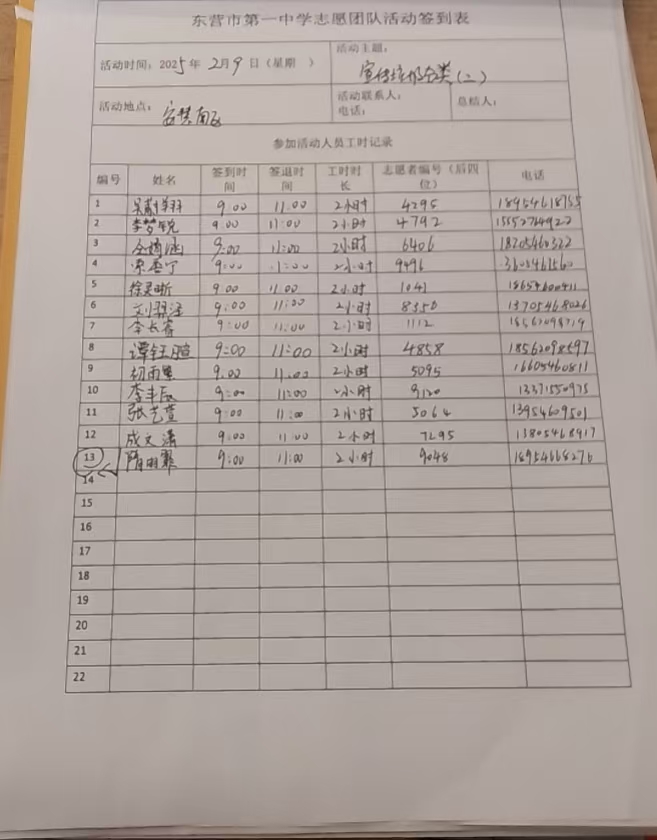 东营市第一中学志愿团队活动签到表
活动时间：2025年 2月9日（星期 ） 活动主题：
宣传垃圾分类（二）
活动地点： 活动联系人： 总结人：
电话：
参加活动人员工时记录
编号 姓名 签到时间 签退时间 工时时长 志愿者编号（后四位） 电话
1 9:00 11:00 2小时 4295
2 李梦锐 9:00 11:00 2小时 4792 15552764922
3 9:00 11:00 2小时 6406 18205460322
4 9:00 11:00 2小时 9496
5 徐灵昕 9:00 11:00 2小时 1041 18654600411
6 9:00 11:00 2小时 8350 13705468026
7 李长睿 9:00 11:00 2小时 1112
8 谭钰萱 9:00 11:00 2小时 4858 18562098597
9 初雨墨 9:00 11:00 2小时 5095 16605460811
10 李丰辰 9:00 11:00 2小时 9120 13371550975
11 张艺萱 9:00 11:00 2小时 5064 13954609501
12 成文潇 9:00 11:00 2小时 7295 13805468917
13 隋雨霏 9:00 11:00 2小时 9048 18954668276
14
15
16
17
18
19
20
21
22